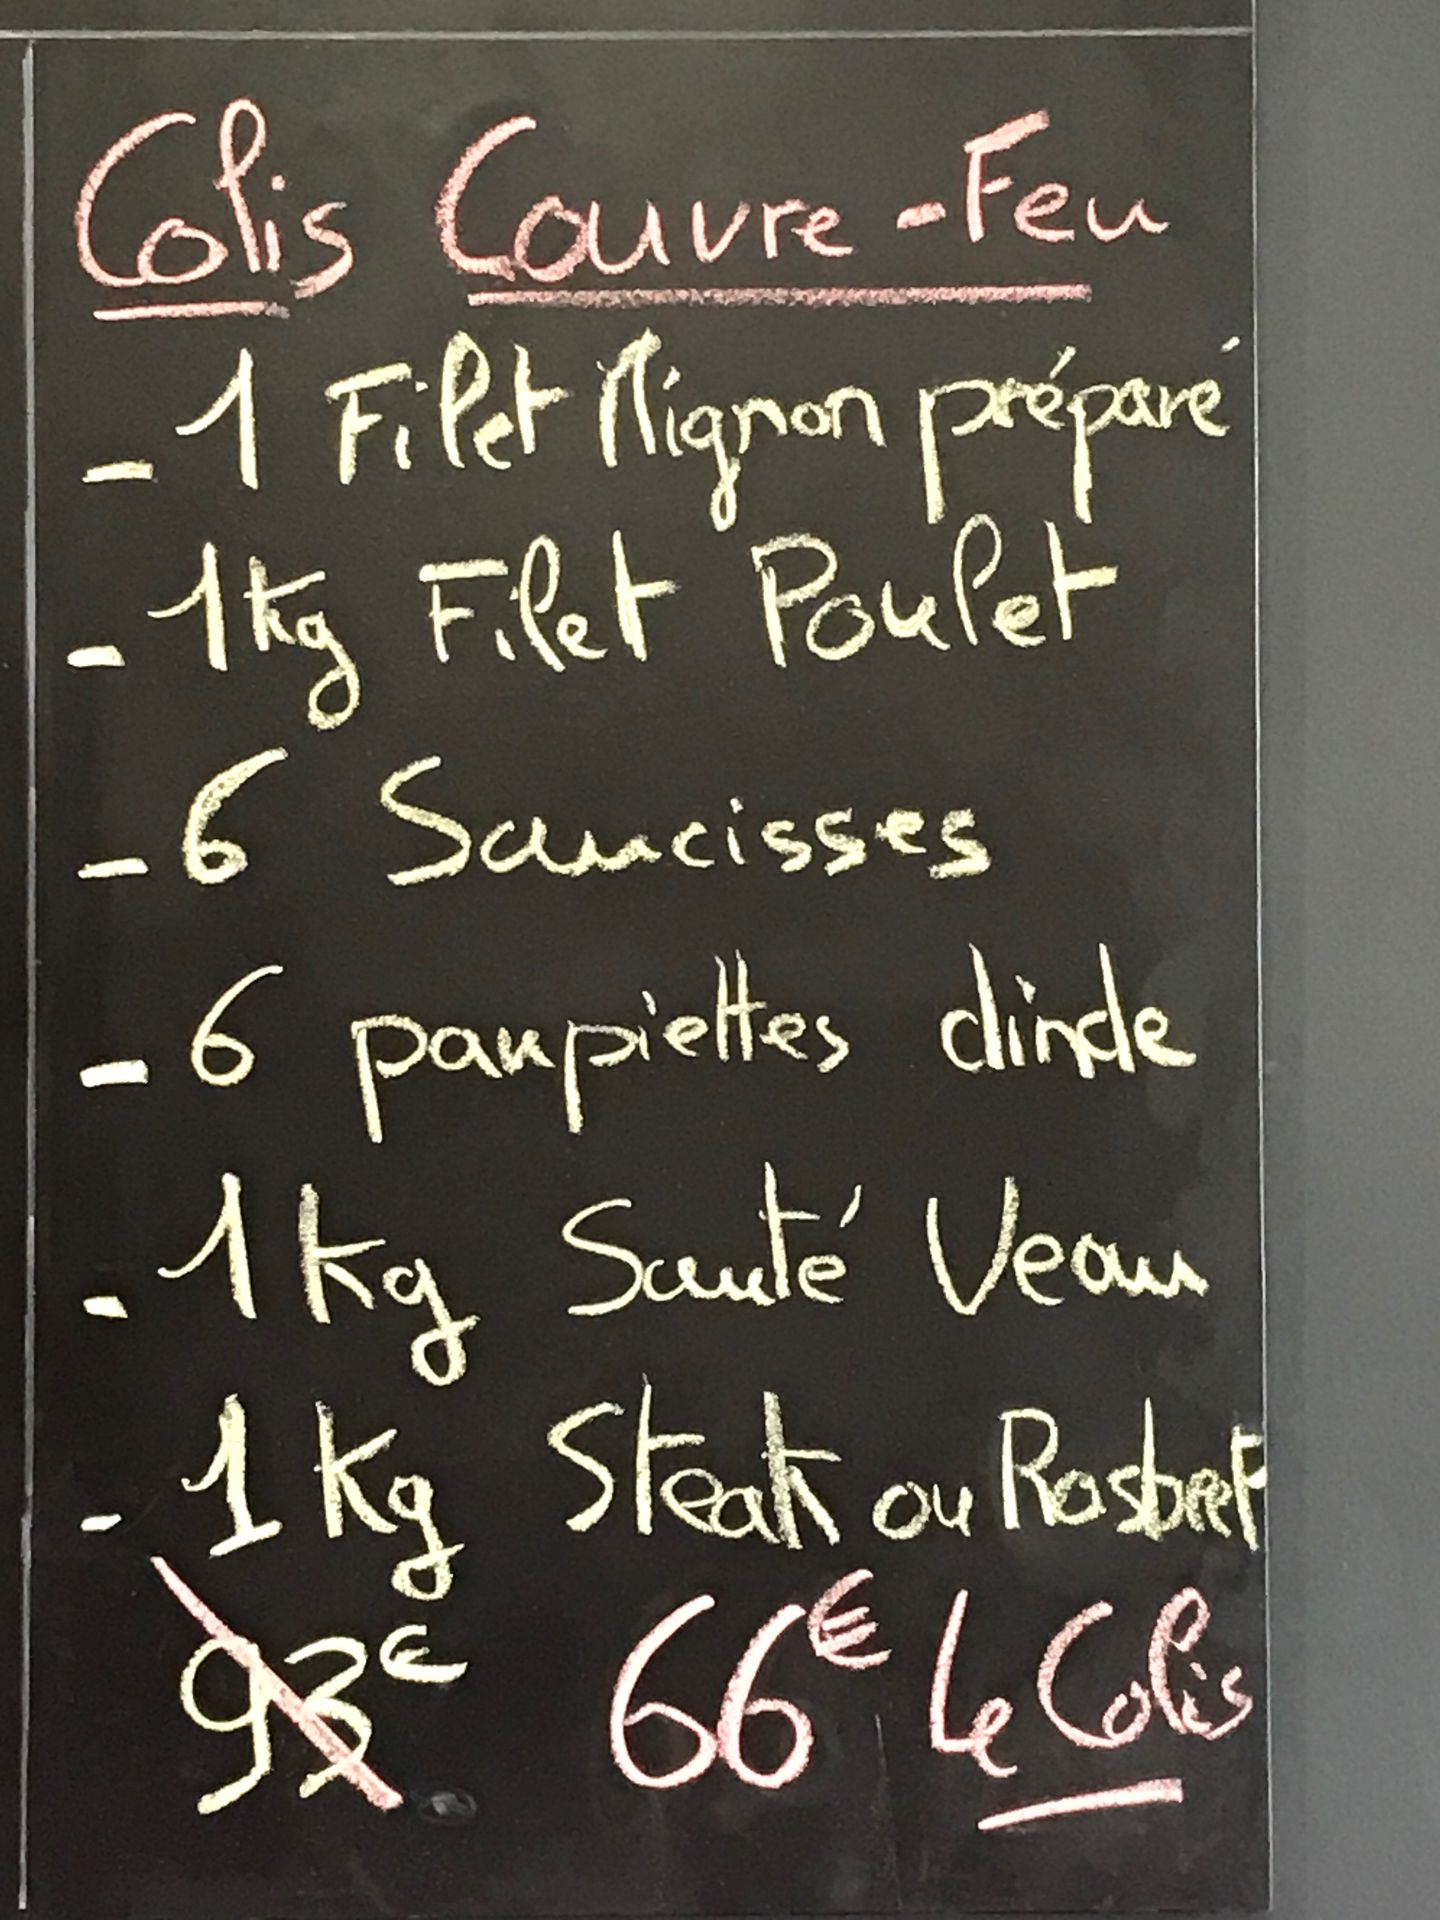 Colis Couvre-Feu
- 1 Filet Mignon préparé
- 1kg Filet Poulet
- 6 Saucisses
- 6 paupiettes dinde
- 1kg Sauté Veau
- 1kg Steak ou Rosbeef
93€ 66€ Le Colis